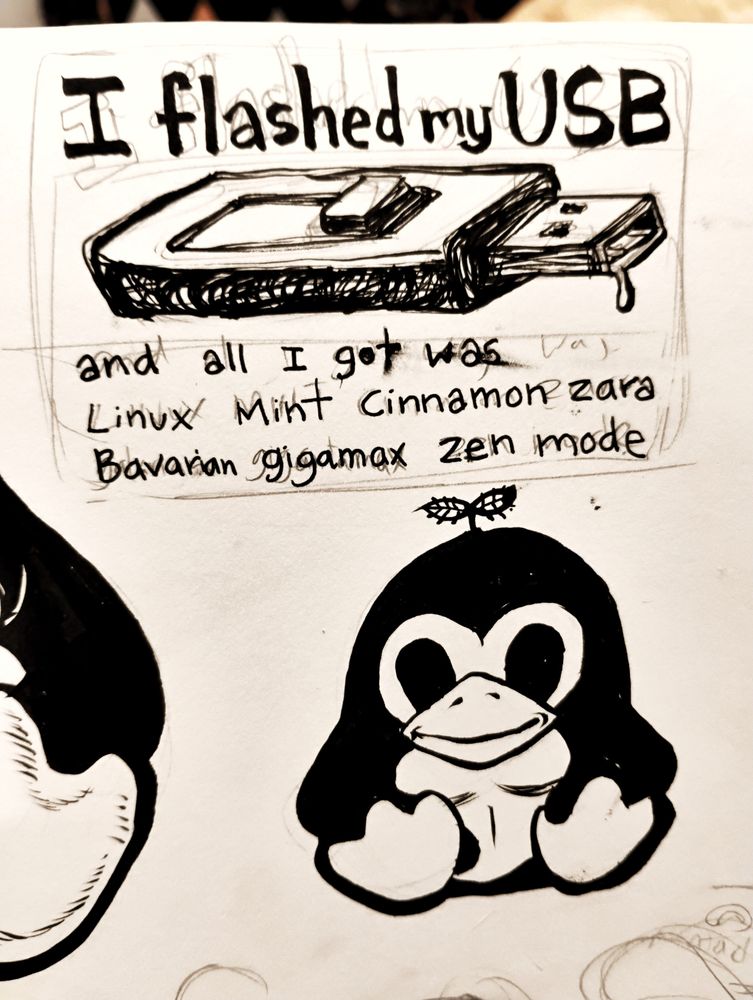 I flashed my USB
and all I got was
Linux Mint Cinnamon zara
Bavarian gigamax zen mode